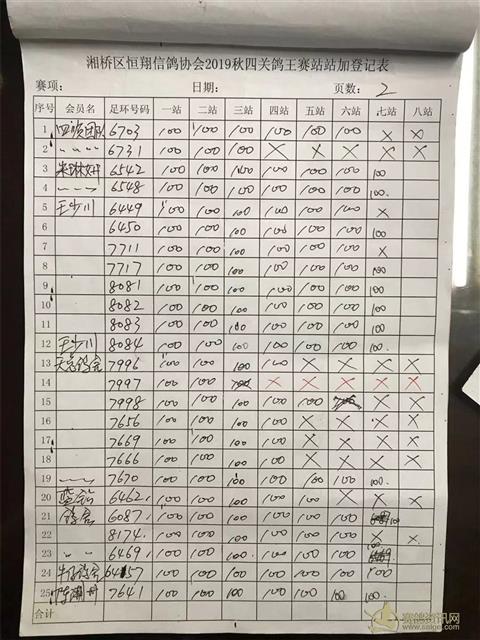 湘桥区恒翔信鸽协会2019秋四关鸽王赛站站加登记表
赛项: 日期: 页数: 2
序号 会员名 足环号码 一站 二站 三站 四站 五站 六站 七站 八站
1 团队 6703 100 100 100 100 100 100 × ×
2 〃 〃 〃 6731 100 100 100 × × × × ×
3 6542 100 100 100 100 100 100 100
4 6548 100 100 100 100 100 100 100
5 王少川 6449 100 100 100 100 100 100 ×
6 6450 100 100 100 100 100 100 100
7 7711 100 100 100 100 100 100 ×
8 7717 100 100 100 100 100 100 100
9 8081 100 100 100 100 100 100 100
10 8082 100 100 100 100 100 100 100
11 8083 100 100 100 100 100 100 100
12 王少川 8084 100 100 100 100 100 100 100
13 7996 100 100 100 100 × × × ×
14 7997 100 100 × × × × ×
15 7998 100 100 100 100 100 × ×
16 7656 100 100 100 100 × × × ×
17 7669 100 100 100 100 × × × ×
18 7666 100 100 100 100 × × × ×
19 7670 100 100 100 100 100 100 100
20 6462 100 100 100 100 100 × × ×
21 6087 100 100 100 100 100 100 100
22 8174 100 100 100 100 100 100 × ×
23 〃 〃 6469 100 100 100 100 100 100
24 6457 100 100 100 100 100 100 100
25 7641 100 100 100 100 100 100 100
合计
赛鸽资讯网
www.saige.com